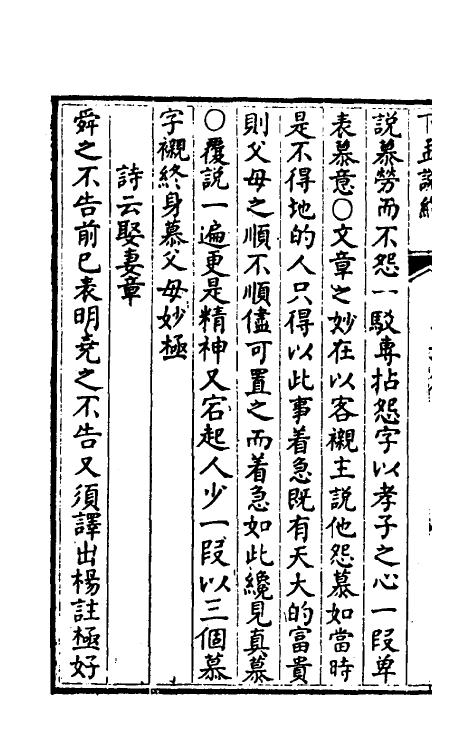 說慕勞而不怨一駁專拈怨字以孝子之心一段单
表慕意〇文章之妙在以客襯主說他怨慕如當時
是不得地的人只得以此事着急既有天大的富貴
則父母之順不順儘可置之而着急如此纔見真慕
〇覆說一遍更是精神又宕起人少一段以三個慕
字襯終身慕父母妙極
詩云娶妻章
舜之不告前已表明堯之不告又須譯出楊註極好